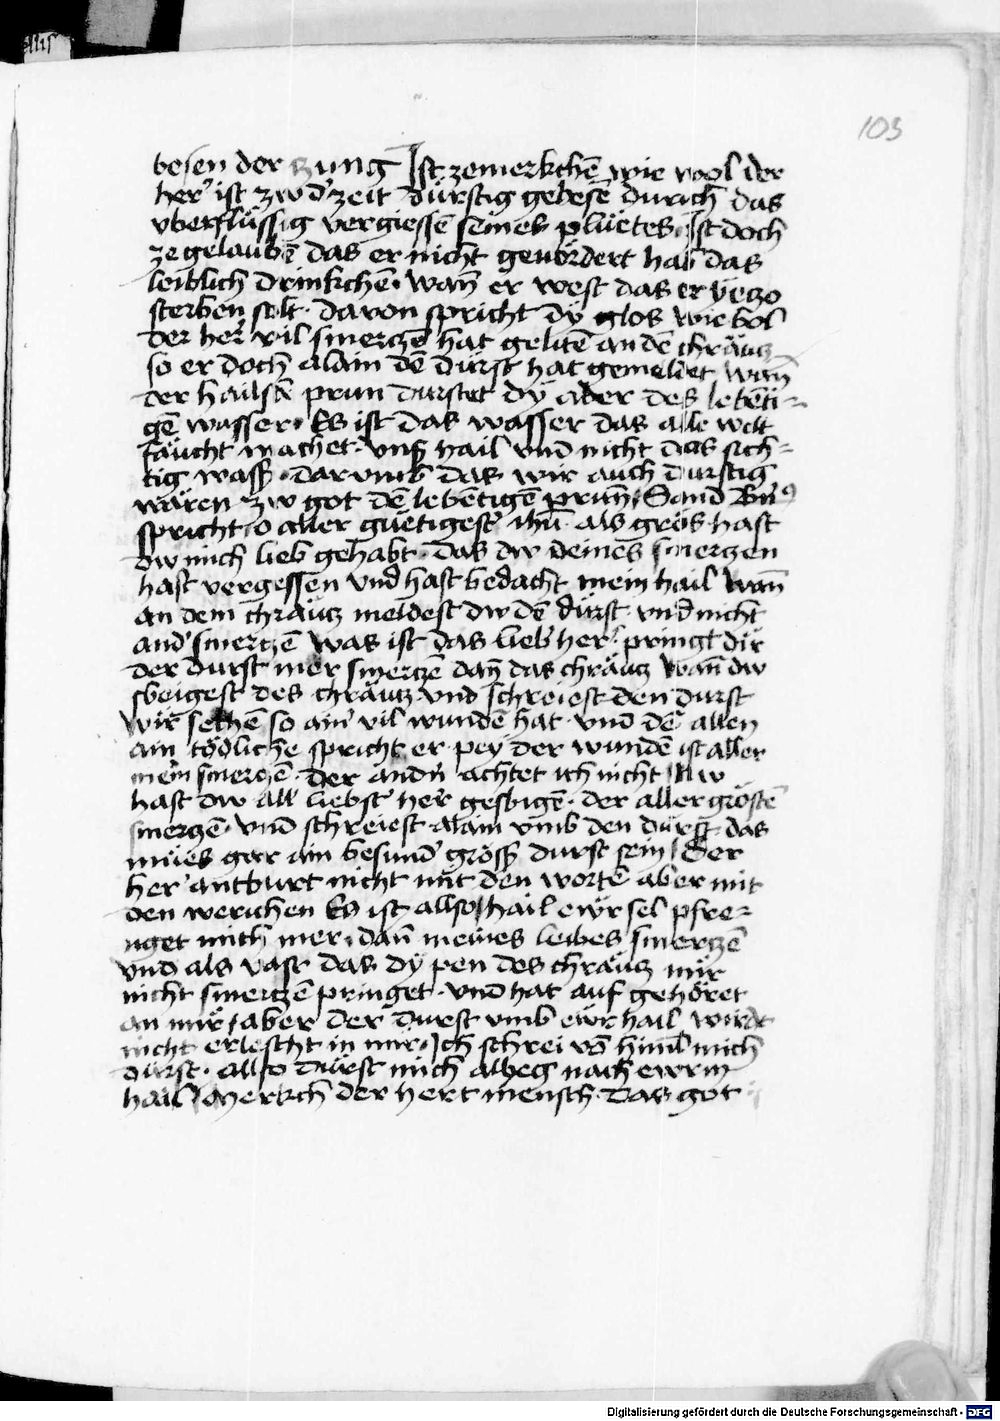 103
besen der zung Ist zemerkchē wie wol der
her' ist zw d' zeit dürstig gebesē durich das
vberflüssig vergiessē seines pluetes Ist doch
ze gelaubē das er nicht geuördert hab das
leiblich drinkchē · wan̄ er west das er yeczo
sterben solt · dauon spricht dÿ glos wie bol
der her' vil smerczē hat gelitē an dē chräucz
so er doch alain dē dürst hat gemeldet wan̄
der hailsā prun durstet dÿ ader des lebēti-
gē wasser · Es ist das wasser das alle welt
fäucht machet · vns hail vnd nicht das sich-
tig wass' · darvmb das wir auch durstig
wären zw got dē lebētigē prun̄ Sand Bn̄9
spricht o aller guetigest' ihū als grös hast
dw mich lieb gehabt · das dw deines smerczen
hast vergessen vnd hast bedacht mein hail wan̄
an dem chräucz meldest dw dē dürst vnd nicht
and' smerczē was ist das lieb' her' pringt dir
der durst mer smerczē dan̄ das chräucz wan̄ dw
sbeigest des chräucz vnd schreiest den durst
wir sechē so ain' vil wundē hat · vnd dē allen
ain tödliche spricht er pey der wundē ist aller
mein smerczē · der andn̄ achtet ich nicht Nw
hast dw all' liebst' her' gesbigē · der aller gröstē
smerczē · vnd schreiest alain vmb den dürst das
mües gar ain besund' gröss' durst sein Der
her' antburt nicht mit den wortē aber mit
den werichen Es ist allso hail ewr sel pfre-
nget mich mer · dan̄ meines leibes smerczē
vnd als vast das dÿ pen des chräucz mir
nicht smerczē pringet · vnd hat auf gehöret
an mir aber der durst vmb ewr hail wirdt
nicht erlescht in mir · Ich schrei vō himl mich
dürst · allso dürst mich albeg nach ewrm
hail Merkch der hert mensch · das got
Digitalisierung gefördert durch die Deutsche Forschungsgemeinschaft - DFG